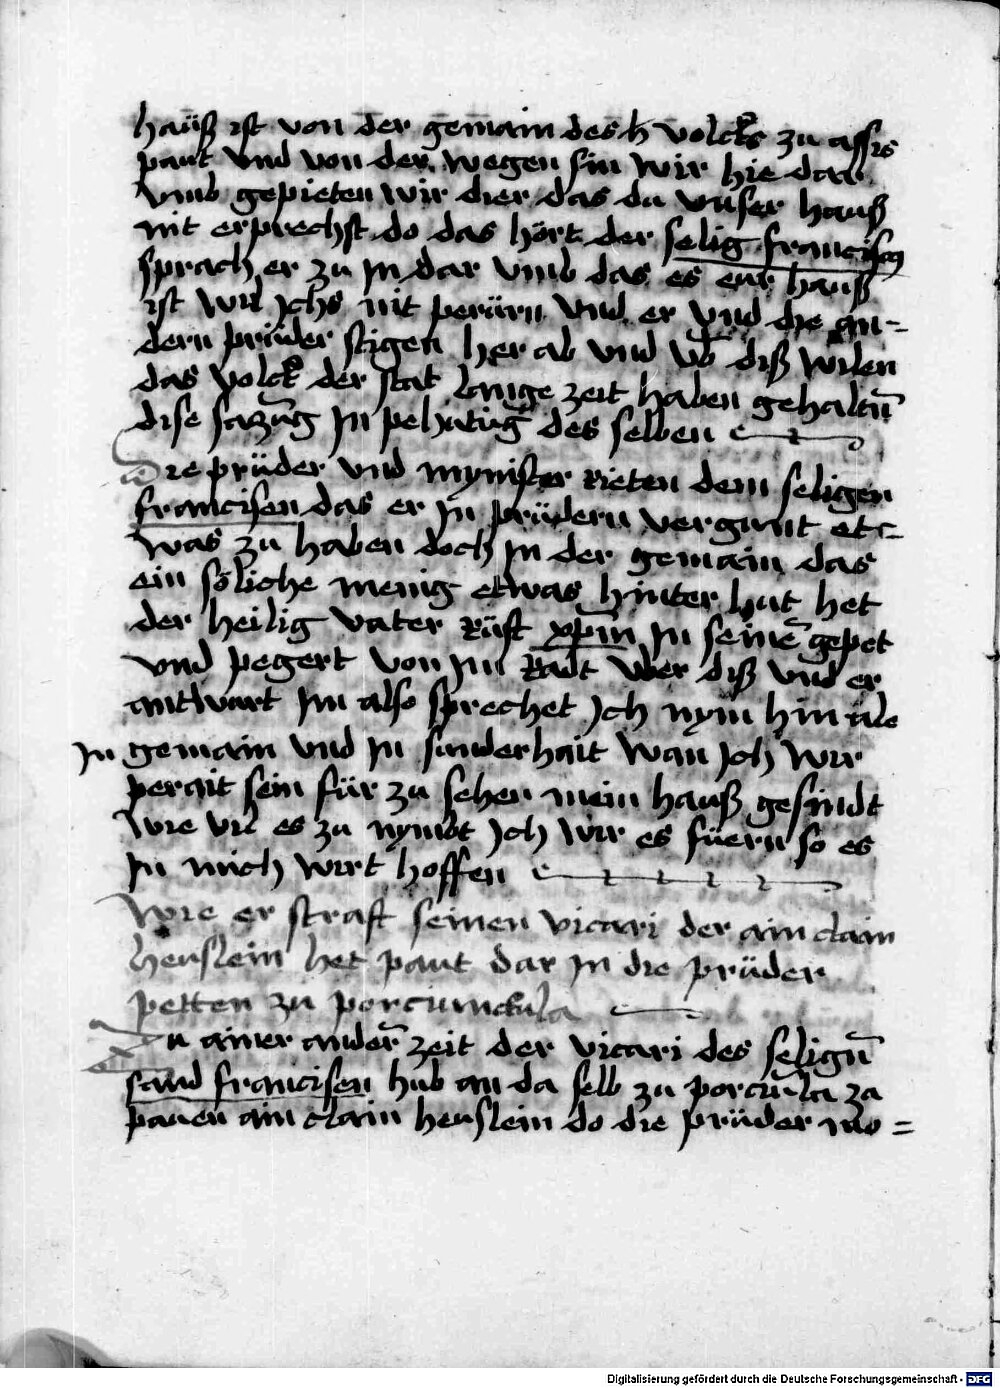 hauß ist von der gemain des h volcks zu assis
paut vnd von der wegen sin wir hie dar
vmb gepieten wir dier das du vnser hauß
nit erprechst do das hört der selig franciscen
sprach er zu In dar vmb das es eur hauß
ist wil Ichs nit perürn vnd er vnd die an-
dern prüder stigen her ab vnd vb diß wilen
das volck der stat lange zeit haben gehaltn̄
dise sazūg In des selben
Die prüder vnd mynister rieten dem seligen
francisen das er In prüdern vergunt et-
was zu haben doch In der gemain das
ein söliche menig etwas hinter hut het
der heilig vater rüft xp̄m In seinē gepet
vnd pegert von Im radt vber diß vnd er
antwurt Im also sprechet Ich nym hin ale
In gemain vnd In sunderhait wan Ich wir
perait sein für zu sehen mein hauß gesindt
wie vil es zu nymbt Ich wir es füern so es
In mich wirt hoffen
Wie er straft seinen vicari der ain clain
heuslein het paut dar In die prüder
petten zu porciunckula
Zu ainer anderr̄ zeit der vicari des selign̄
sand francisen hub an da selb zu porcūla za
pauen ain clain heuslein do die prüder mo=
Digitalisierung gefördert durch die Deutsche Forschungsgemeinschaft - DFG